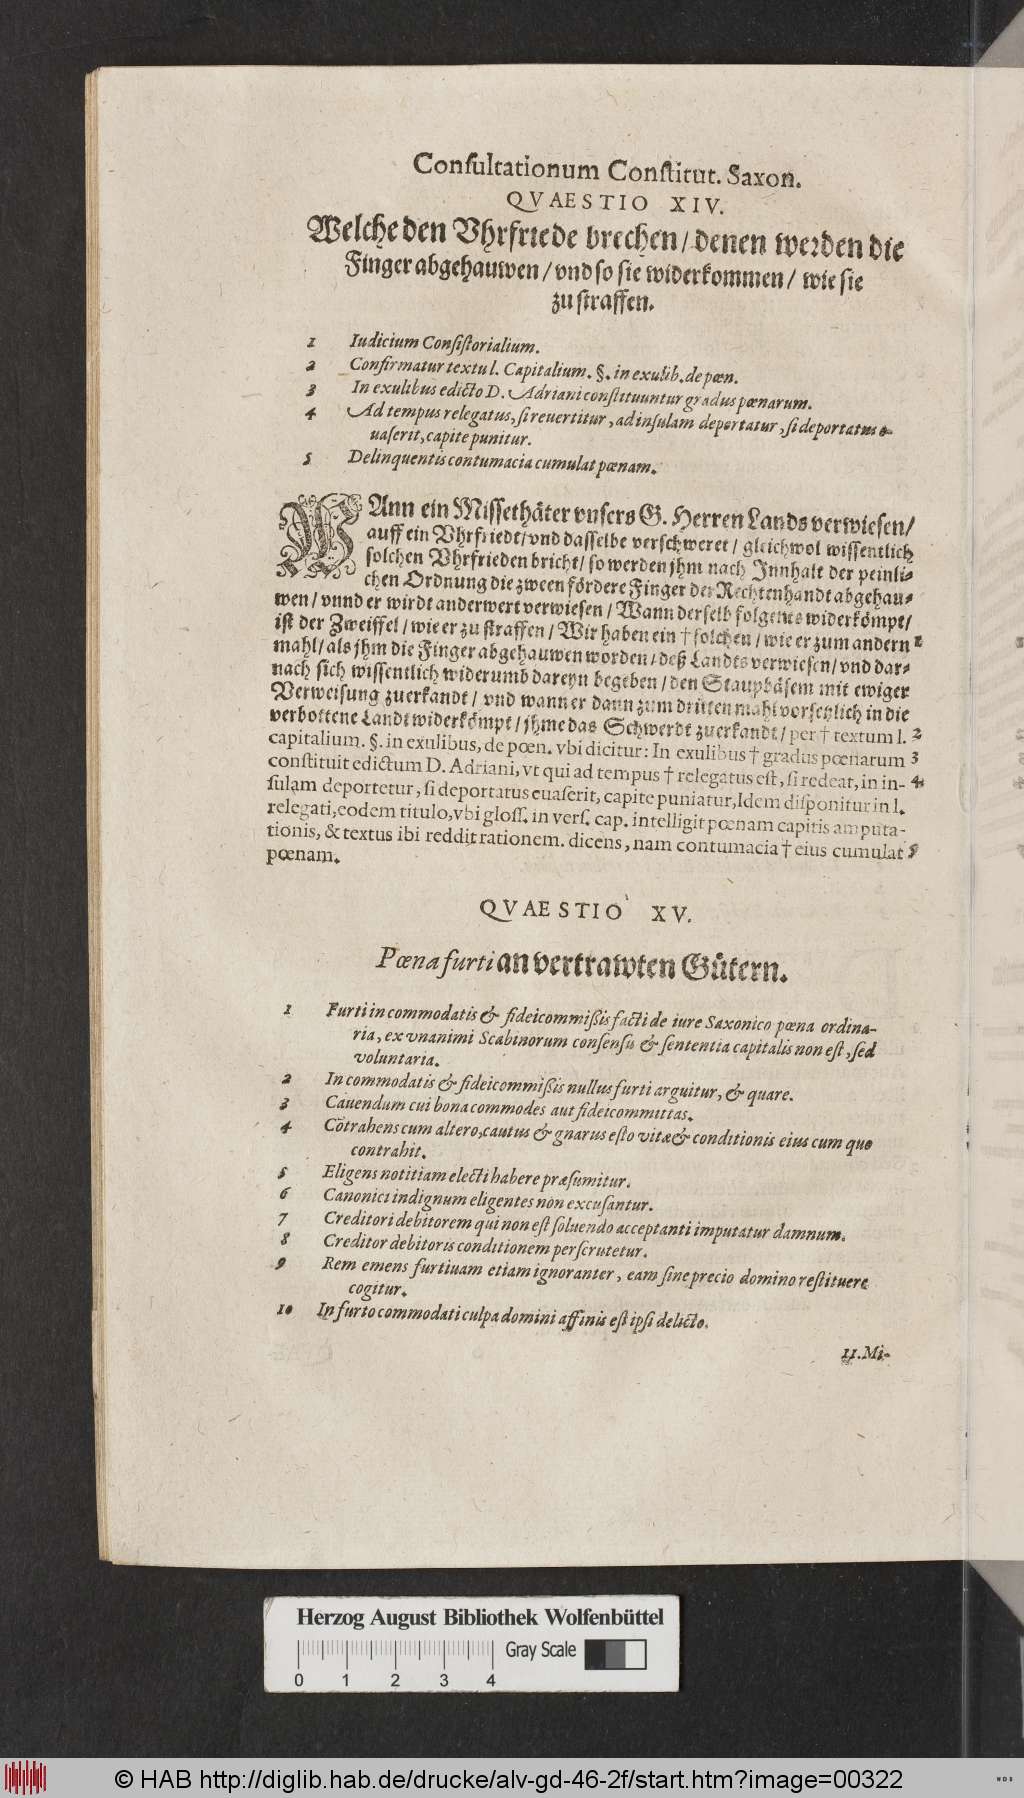 Conſultationum Conſtitut. Saxon.
QVAESTIO XIV.
Welche den Vhrfriede brechen / denen werden die
Finger abgehauwen / vnd ſo ſie widerkommen / wie ſie
zu ſtraffen.
1 Iudicium Conſiſtorialium.
2 Confirmatur textu l. Capitalium. §. in exulib. de pœn.
3 In exulibus edicto D. Adriani conſtituuntur gradus pœnarum.
4 Ad tempus relegatus, ſi reuertitur, ad inſulam deportatur, ſi deportatus e-
uaſerit, capite punitur.
5 Delinquentis contumacia cumulat pœnam.
WAnn ein Miſſethäter vnſers G. Herren Lands verwieſen /
auff ein Vhrfriedt / vnd daſſelbe verſchweret / gleichwol wiſſentlich
ſolchen Vhrfrieden bricht / ſo werden jhm nach Innhalt der peinli-
chen Ordnung die zween fördere Finger der Rechtenhandt abgehau-
wen / vnnd er wirdt anderwert verwieſen / Wann derſelb folgents widerkömpt /
iſt der Zweiffel / wie er zu ſtraffen / Wir haben ein † ſolchen / wie er zum andern 1
mahl / als jhm die Finger abgehauwen worden / deß Landts verwieſen / vnd dar-
nach ſich wiſſentlich widerumb dareyn begeben / den Staupbäſem mit ewiger
Verweiſung zuerkandt / vnd wann er dann zum dritten mahl vorſetzlich in die
verbottene Landt widerkömpt / jhme das Schwerdt zuerkandt / per † textum l. 2
capitalium. §. in exulibus, de pœn. vbi dicitur: In exulibus † gradus pœnarum 3
conſtituit edictum D. Adriani, vt qui ad tempus † relegatus eſt, ſi redeat, in in- 4
ſulam deportetur, ſi deportatus euaſerit, capite puniatur, Idem diſponitur in l.
relegati, eodem titulo, vbi gloſſ. in verſ. cap. intelligit pœnam capitis amputa-
tionis, & textus ibi reddit rationem. dicens, nam contumacia † eius cumulat 5
pœnam.
QVAESTIO XV.
Pœna furti an vertrawten Gütern.
1 Furti in commodatis & fideicommiſsis facti de iure Saxonico pœna ordina-
ria, ex vnanimi Scabinorum conſenſu & ſententia capitalis non eſt, ſed
voluntaria.
2 In commodatis & fideicommiſsis nullus furti arguitur, & quare.
3 Cauendum cui bona commodes aut fideicommittas.
4 Cōtrahens cum altero, cautus & gnarus eſto vitæ & conditionis eius cum quo
contrahit.
5 Eligens notitiam electi habere præſumitur.
6 Canonici indignum eligentes non excuſantur.
7 Creditori debitorem qui non eſt ſoluendo acceptanti imputatur damnum.
8 Creditor debitoris conditionem perſcrutetur.
9 Rem emens furtiuam etiam ignoranter, eam ſine precio domino reſtituere
cogitur.
10 In furto commodati culpa domini affinis eſt ipſi delicto.
11. Mi-
Herzog August Bibliothek Wolfenbüttel
Gray Scale
0 1 2 3 4
© HAB http://diglib.hab.de/drucke/alv-gd-46-2f/start.htm?image=00322